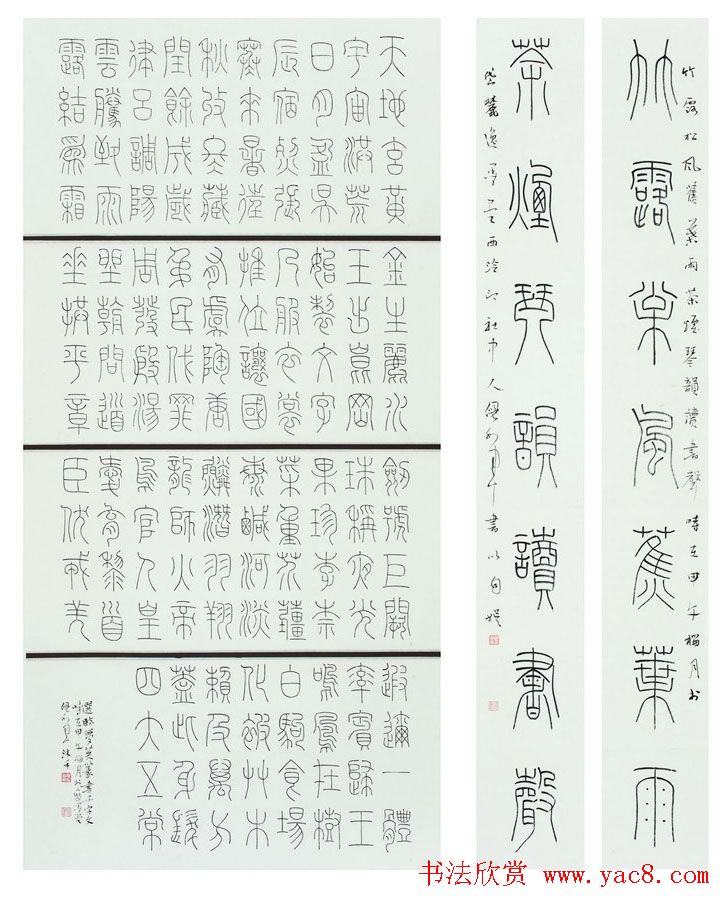 竹露松風蕉葉雨
竹露松風蕉葉雨茶煙琴韻讀書聲時在甲午榴月於
茶煙琴韻讀書聲
岱麓逸墨堂西泠印社中人書以自娛
天地玄黃
宇宙洪荒
日月盈昃
辰宿列張
寒來暑往
秋收冬藏
閏餘成歲
律呂調陽
雲騰致雨
露結為霜
金生麗水
玉出崑岡
始製文字
乃服衣裳
推位讓國
有虞陶唐
弔民伐罪
周發殷湯
坐朝問道
垂拱平章
劍號巨闕
珠稱夜光
果珍李柰
菜重芥薑
海鹹河淡
鱗潛羽翔
龍師火帝
鳥官人皇
愛育黎首
臣伏戎羌
遐邇一體
率賓歸王
鳴鳳在樹
白駒食場
化被艸木
賴及萬方
蓋此身髮
四大五常
時在甲午
书法欣赏 www.yac8.com